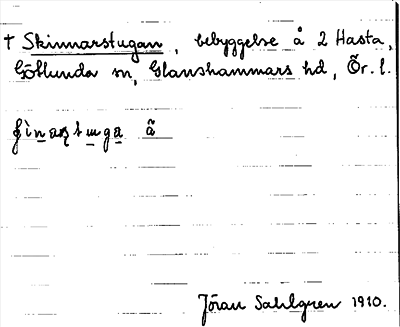 † Skinnarstugan, bebyggelse å 2 Hasta,
Götlunda sn, Glanshammars hd, Ör. l.
Jöran Sahlgren 1910.